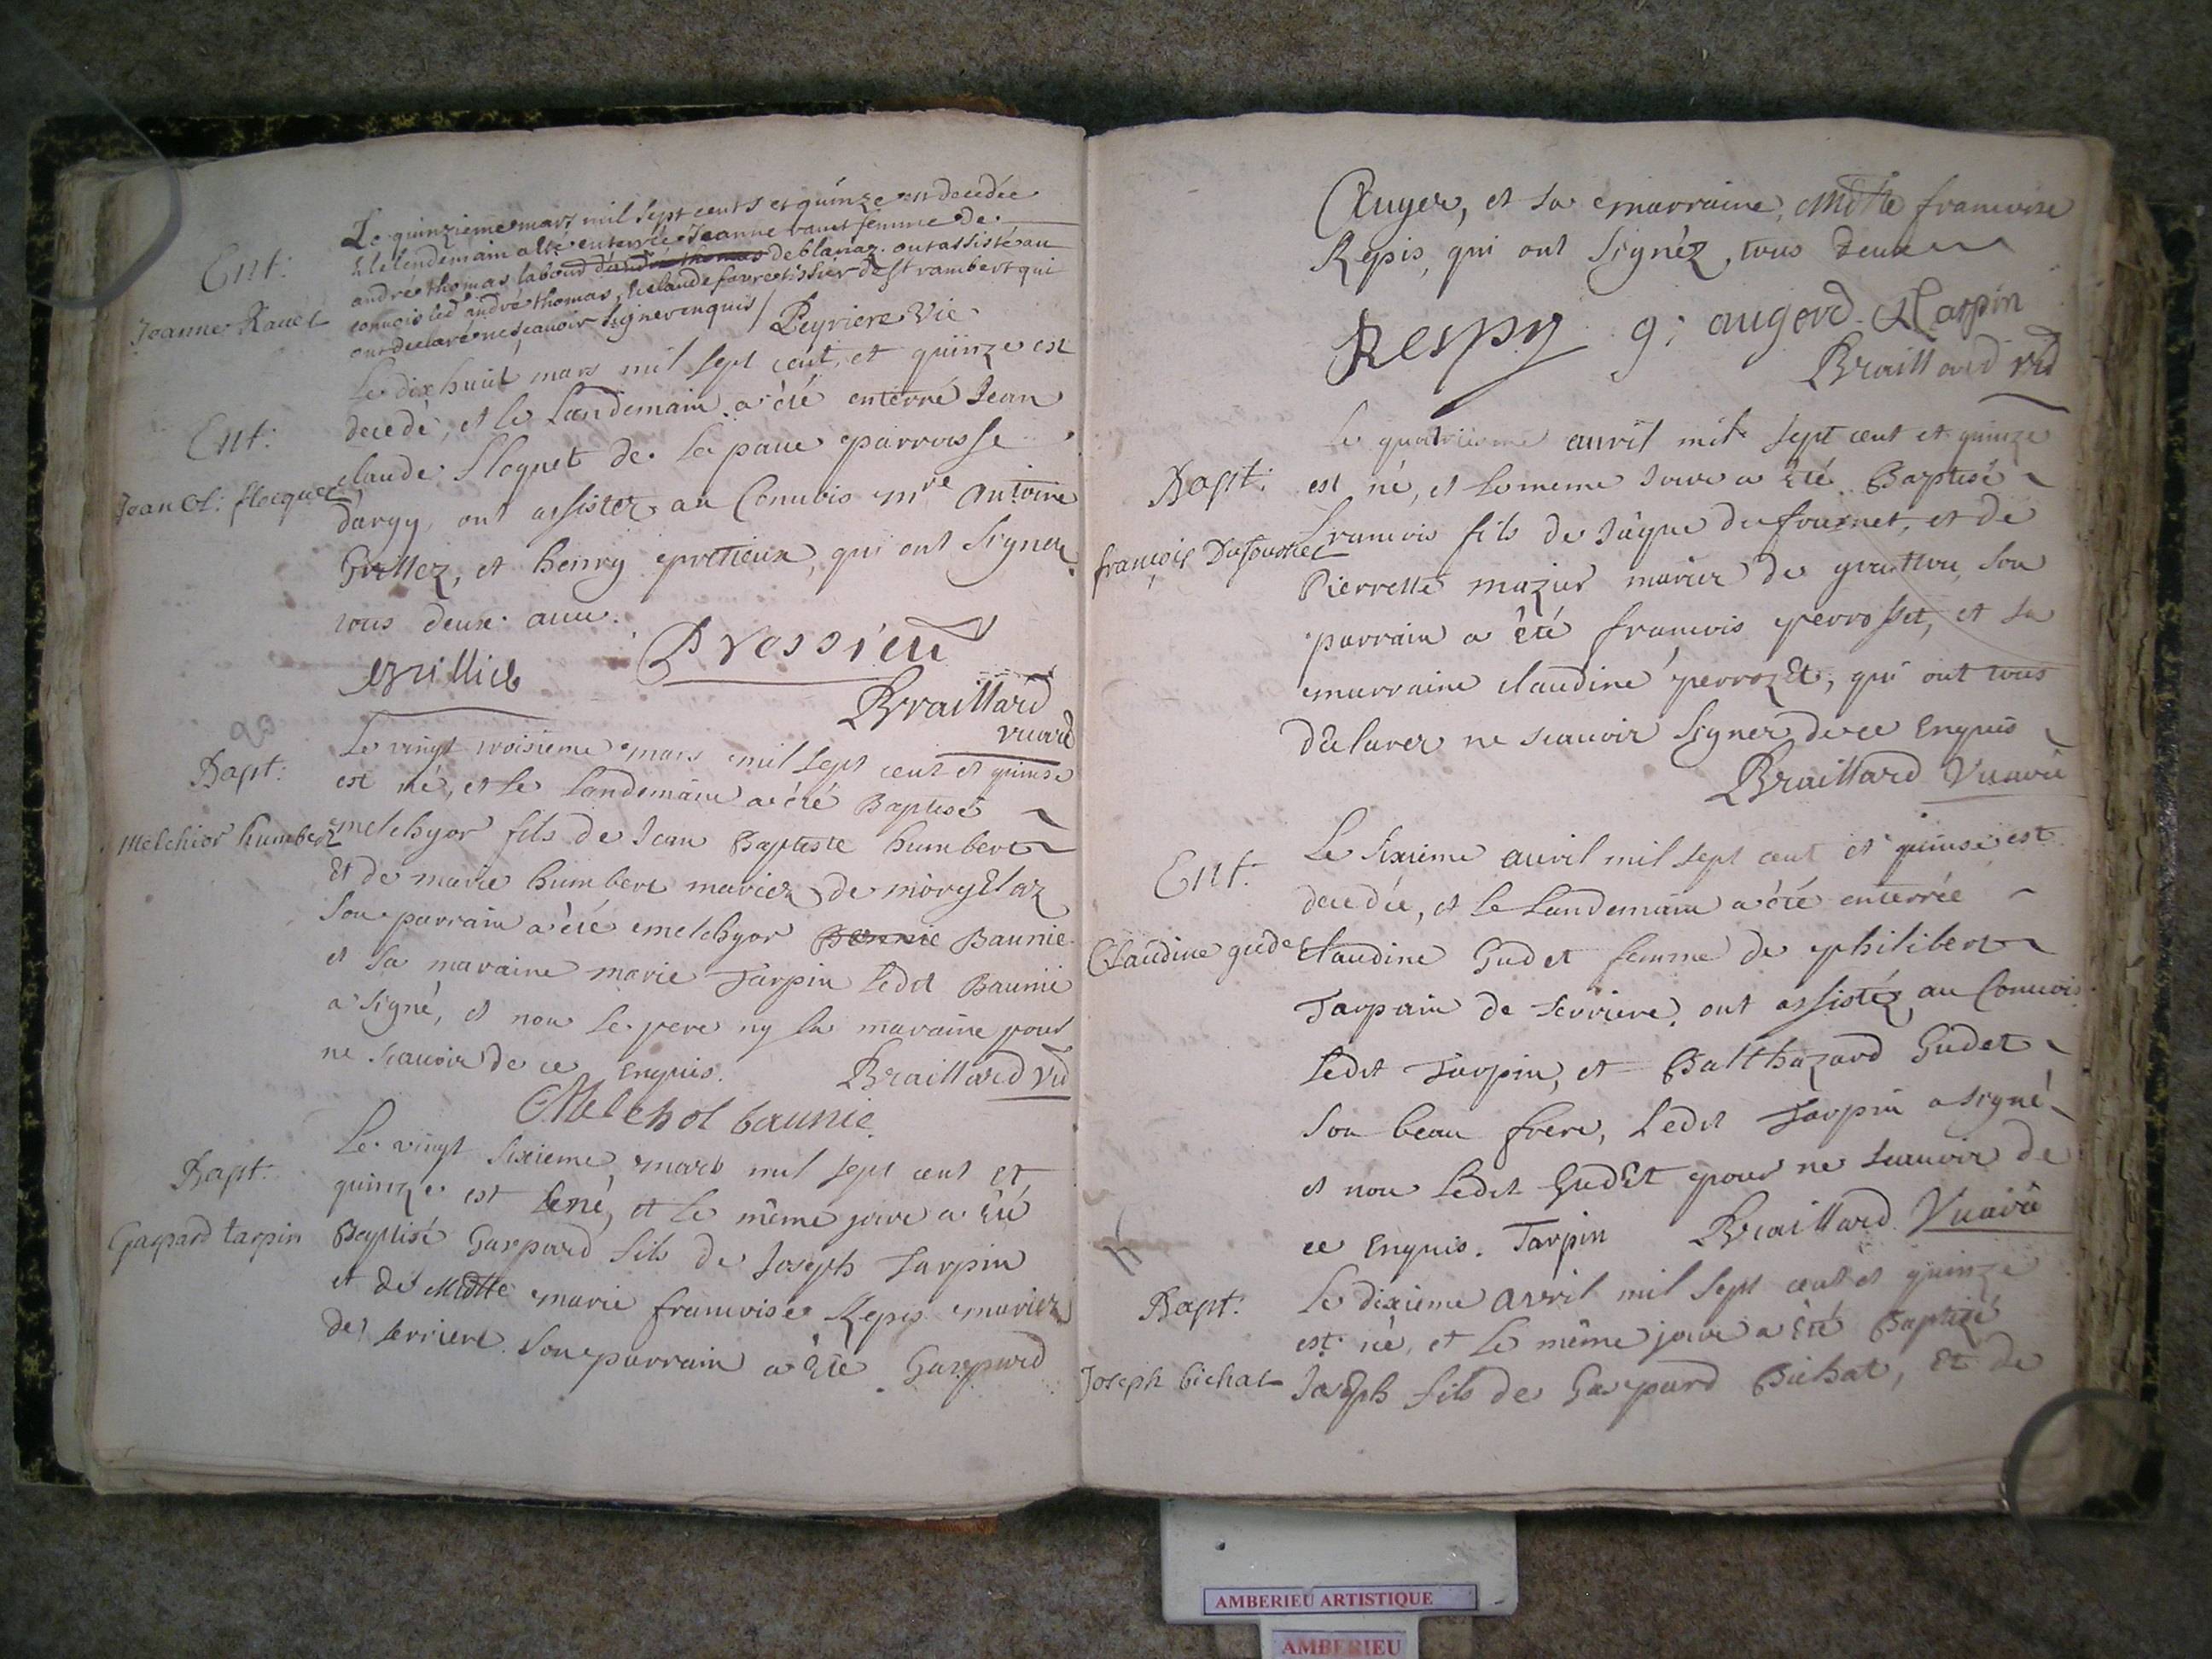 Le quinzieme mars mil sept cents et quinze est decedée
Ent:
& le lendemain a eté enterrée Jeanne ravet femme de
andre thomas labour d'andré thomas de blanaz. ont assisté au
Joanne Ravet
conuois led andré thomas, & claude favre tissier de st rambert qui
ont declaré ne scauoir signer enquis / Peyriere Vic
Le dix huit mars mil sept cent, et quinze est
decedé, et le Landemain a été enterré Jean
Ent:
claude floquet de la paue parroisse
Jean Cl: flocquet
dargy, ont assistez au Conuois mre Antoine
Grillez, et henry pretieux, qui ont signez
tous deux
Grilliet Pressieu
Braillard
vicaire
Le vingt troisieme mars mil sept cent et quinse
Bapt:
est né, et le Landemain a été Baptisé
Melchior humbert
melchyor fils de Jean Baptiste humbert
Et de marie humbert mariez de morgelaz
son parrain a été melchyor Bonnie Baunie
et sa maraine marie Tarpin ledit Baunie
a signé, et non le pere ny la maraine pour
ne scauoir de ce Enquis. Braillard vic
Melchol baunie
Le vingt sixieme mars mil sept cent et
Bapt.
quinze est né, et le même jour a été
Gaspard tarpin
Baptisé Gaspard fils de Joseph Tarpin
et de Mdlle marie francoise Repis mariez
de terriere. son parrain a été Gaspard
Auger, et sa marraine, Mdlle francoise
Repis, qui ont signéz, tous deux
Respy g; augerd Tarpin
Braillard vic
le quatrieme auril mil sept cent et quinze
Bapt:
est né, et le meme Jour a été Baptisé
francois fils de Jâque dufournet, et de
françois Dufournet
Pierrette mazuir mariez de
parrain a été francois perrosset, et sa
marraine claudine perrozet, qui ont tous
declarer ne scauoir signer de ce Enquis
Braillard Vicaire
Le sixieme auril mil sept cent et quinse est
Ent.
decedée, et le Landemain a été enterrée
Claudine gudet
Claudine Gudet femme de philibert
Tarpain de terriere, ont assistéz au Conuois
ledit Tarpin, et Balthazard Gudet
son beau frere, Ledit Tarpin a signé
et non ledit Gudet pour ne scauoir de
ce Enquis. Tarpin Braillard Vicaire
Le dixieme avril mil sept cent et quinze
Bapt:
est né, et le même jour a été Baptizé
Joseph bichat
Joseph fils de Gaspard Bichat, Et de
AMBERIEU ARTISTIQUE
AMBERIEU